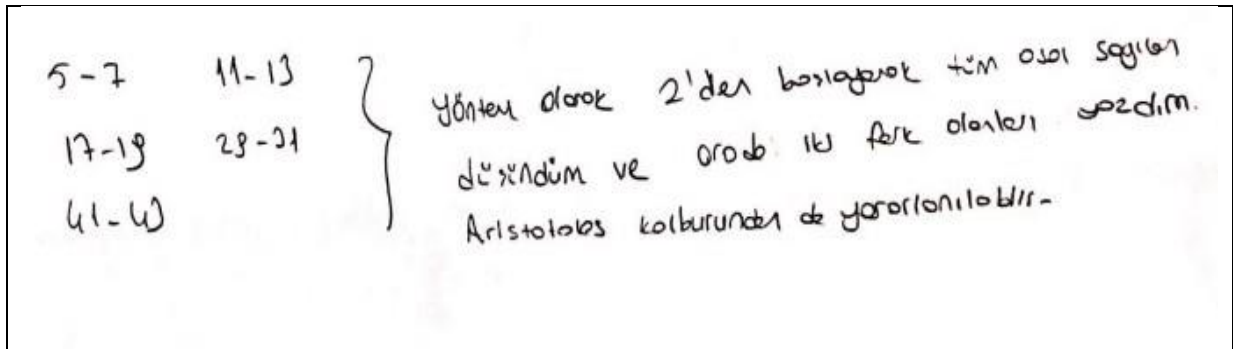 5-7 11-13
17-19 29-31
41-43
Yöntem olarak 2'den başlayarak tüm asal sayıları
düşündüm ve arada iki fark olanları yazdım.
Aristotales kalburundan da yararlanılabilir.